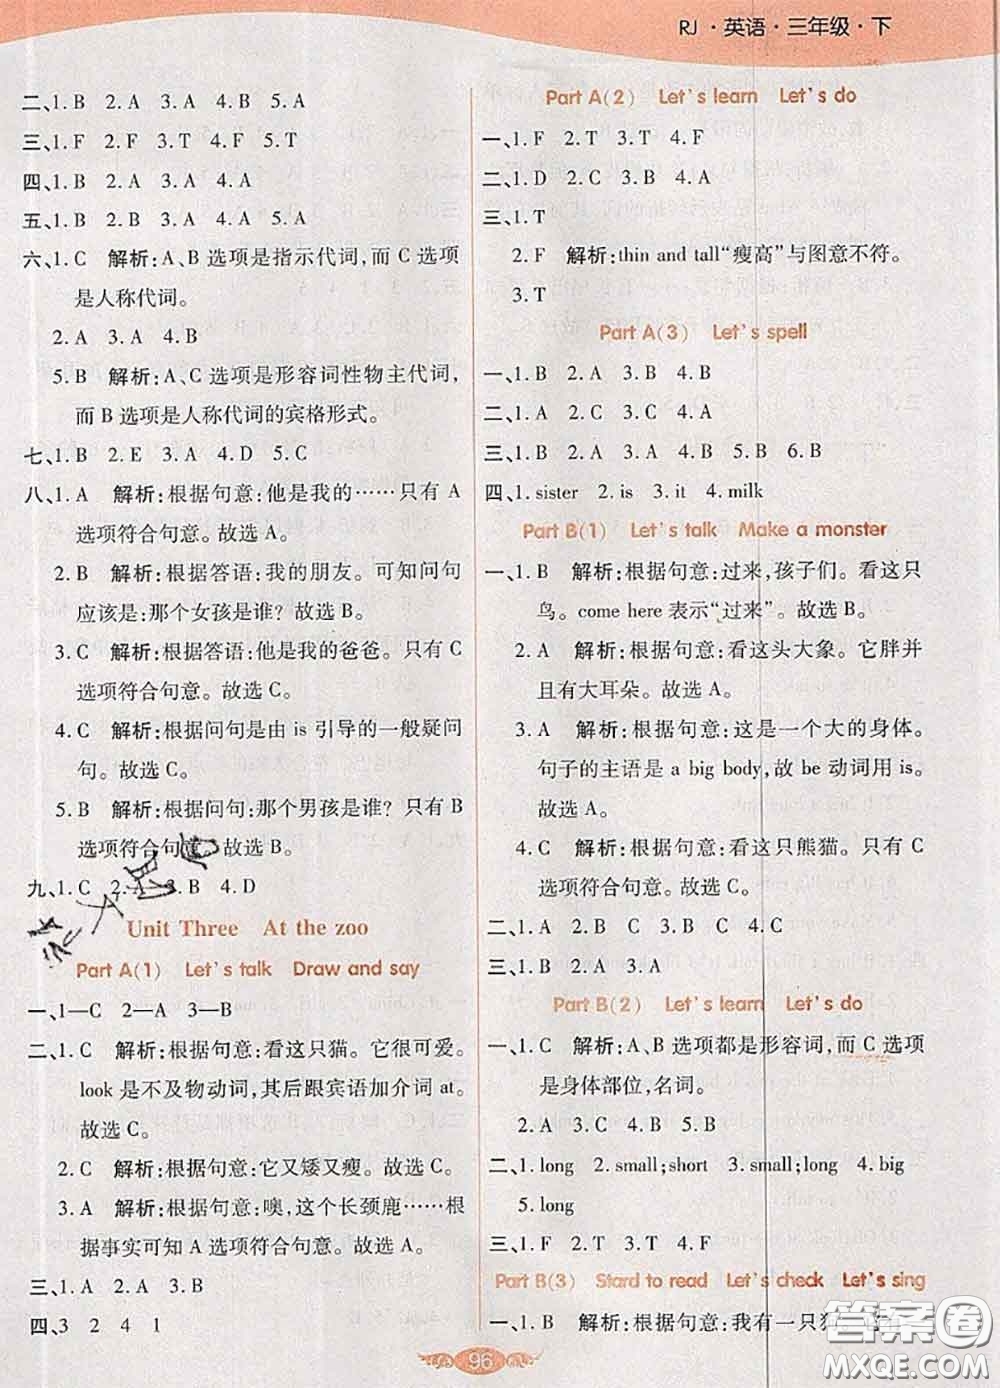 RJ·英语·三年级·下
二、1. B 2. A 3. A 4. B 5. A
三、1. F 2. F 3. T 4. F 5. T
四、1. B 2. A 3. A 4. A
五、1. B 2. B 3. A 4. A 5. A
六、1. C 解析:A、B 选项是指示代词,而 C 选项
是人称代词。
2. A 3. A 4. B
5. B 解析:A、C 选项是形容词性物主代词,
而 B 选项是人称代词的宾格形式。
七、1. B 2. E 3. A 4. D 5. C
八、1. A 解析:根据句意:他是我的……只有 A
选项符合句意。故选 A。
2. B 解析:根据答语:我的朋友。可知问句
应该是:那个女孩是谁? 故选 B。
3. C 解析:根据答语:他是我的爸爸。只有 C
选项符合句意。故选 C。
4. C 解析:根据问句是由 is 引导的一般疑问
句。故选 C。
5. B 解析:根据问句:那个男孩是谁? 只有 B
选项符合句意。故选 B。
九、1. C 2. A 3. B 4. D
Unit Three At the zoo
Part A(1) Let's talk Draw and say
一、1—C 2—A 3—B
二、1. C 解析:根据句意:看这只猫。它很可爱。
look 是不及物动词,其后跟宾语加介词 at。
故选 C。
2. C 解析:根据句意:它又矮又瘦。故选 C。
3. A 解析:根据句意:噢,这个长颈鹿……根
据事实可知 A 选项符合句意。故选 A。
三、1. A 2. A 3. B
四、3 2 4 1
Part A(2) Let's learn Let's do
一、1. F 2. T 3. T 4. F
二、1. D 2. C 3. B 4. A
三、1. T
2. F 解析:thin and tall“瘦高”与图意不符。
3. T
Part A(3) Let's spell
一、1. B 2. A 3. B 4. B
二、1. A 2. C 3. C 4. A
三、1. B 2. B 3. A 4. A 5. B 6. B
四、1. sister 2. is 3. it 4. milk
Part B(1) Let's talk Make a monster
一、1. B 解析:根据句意:过来,孩子们。看这只
鸟。come here 表示“过来”。故选 B。
2. A 解析:根据句意:看这头大象。它胖并
且有大耳朵。故选 A。
3. A 解析:根据句意:这是一个大的身体。
句子的主语是 a big body,故 be 动词用 is。
故选 A。
4. C 解析:根据句意:看这只熊猫。故 C
选项符合句意。故选 C。
二、1. A 2. B 3. C 4. C 5. C
三、1. B 2. A 3. B 4. A
Part B(2) Let's learn Let's do
一、1. C 解析:A、B 选项都是形容词,而 C 选项
是身体部位,名词。
2. A 3. C 4. B 5. B
二、1. long 2. small;short 3. small;long 4. big
5. long
三、1. F 2. T 3. T 4. F
Part B(3) Stard to read Let's check Let's sing
一、1. B 解析:根据句意:我有一只猫。
96
答案圈
MXQE.COM